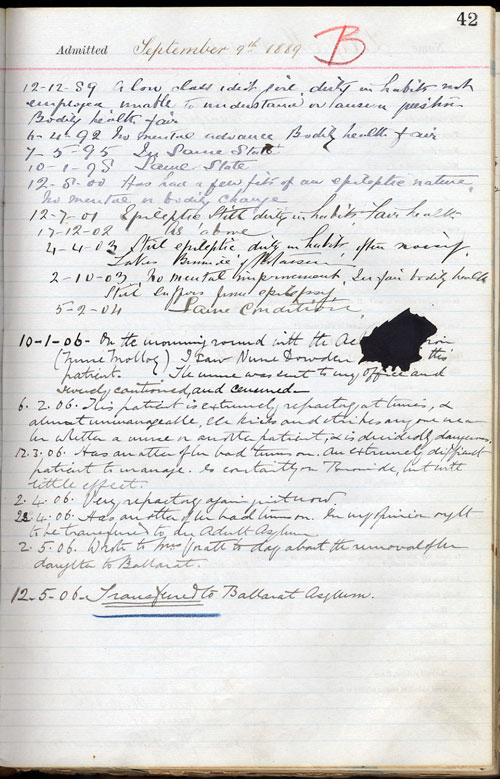 42
Admitted September 9th 1889 B
12-12-89 A low class idiot girl, dirty in habits not
employed, unable to understand or answer question
Bodily health fair
6-4-92 No mental advance Bodily health fair
7-5-95 In Same State
10-1-98 Same State
12-5-00 Has had a few fits of an epileptic nature,
no mental or bodily change
12-7-01 Epileptic Still dirty in habits fair health
17-12-02 As above
4-4-03 Still epileptic dirty in habits often noisy,
Takes Bromide of Potassium
2-10-03 No mental improvement. In fair bodily health
Still suffers from epilepsy
5-2-04 Same Condition
10-1-06- On the morning round with the
(Nurse Molloy) I saw Nurse Dowden this
patient. The nurse was sent to my office and
severely cautioned, and censured-
6.2.06. This patient is extremely refractory at times, &
almost unmanageable, she kicks and strikes any one near
her whether a nurse or another patient, & is decidedly dangerous.
12.3.06. Has another of her bad turns on. An extremely difficult
patient to manage. Is constantly on Bromide, but with
little effect.
2.4.06. Very refractory again just now
4.06. Has another of her bad turns on. In my opinion ought
to be transferred to an Adult Asylum
2.5.06. Wrote to Mrs Pratt to day about the removal of her
daughter to Ballarat.
12-5-06- Transferred to Ballarat Asylum.